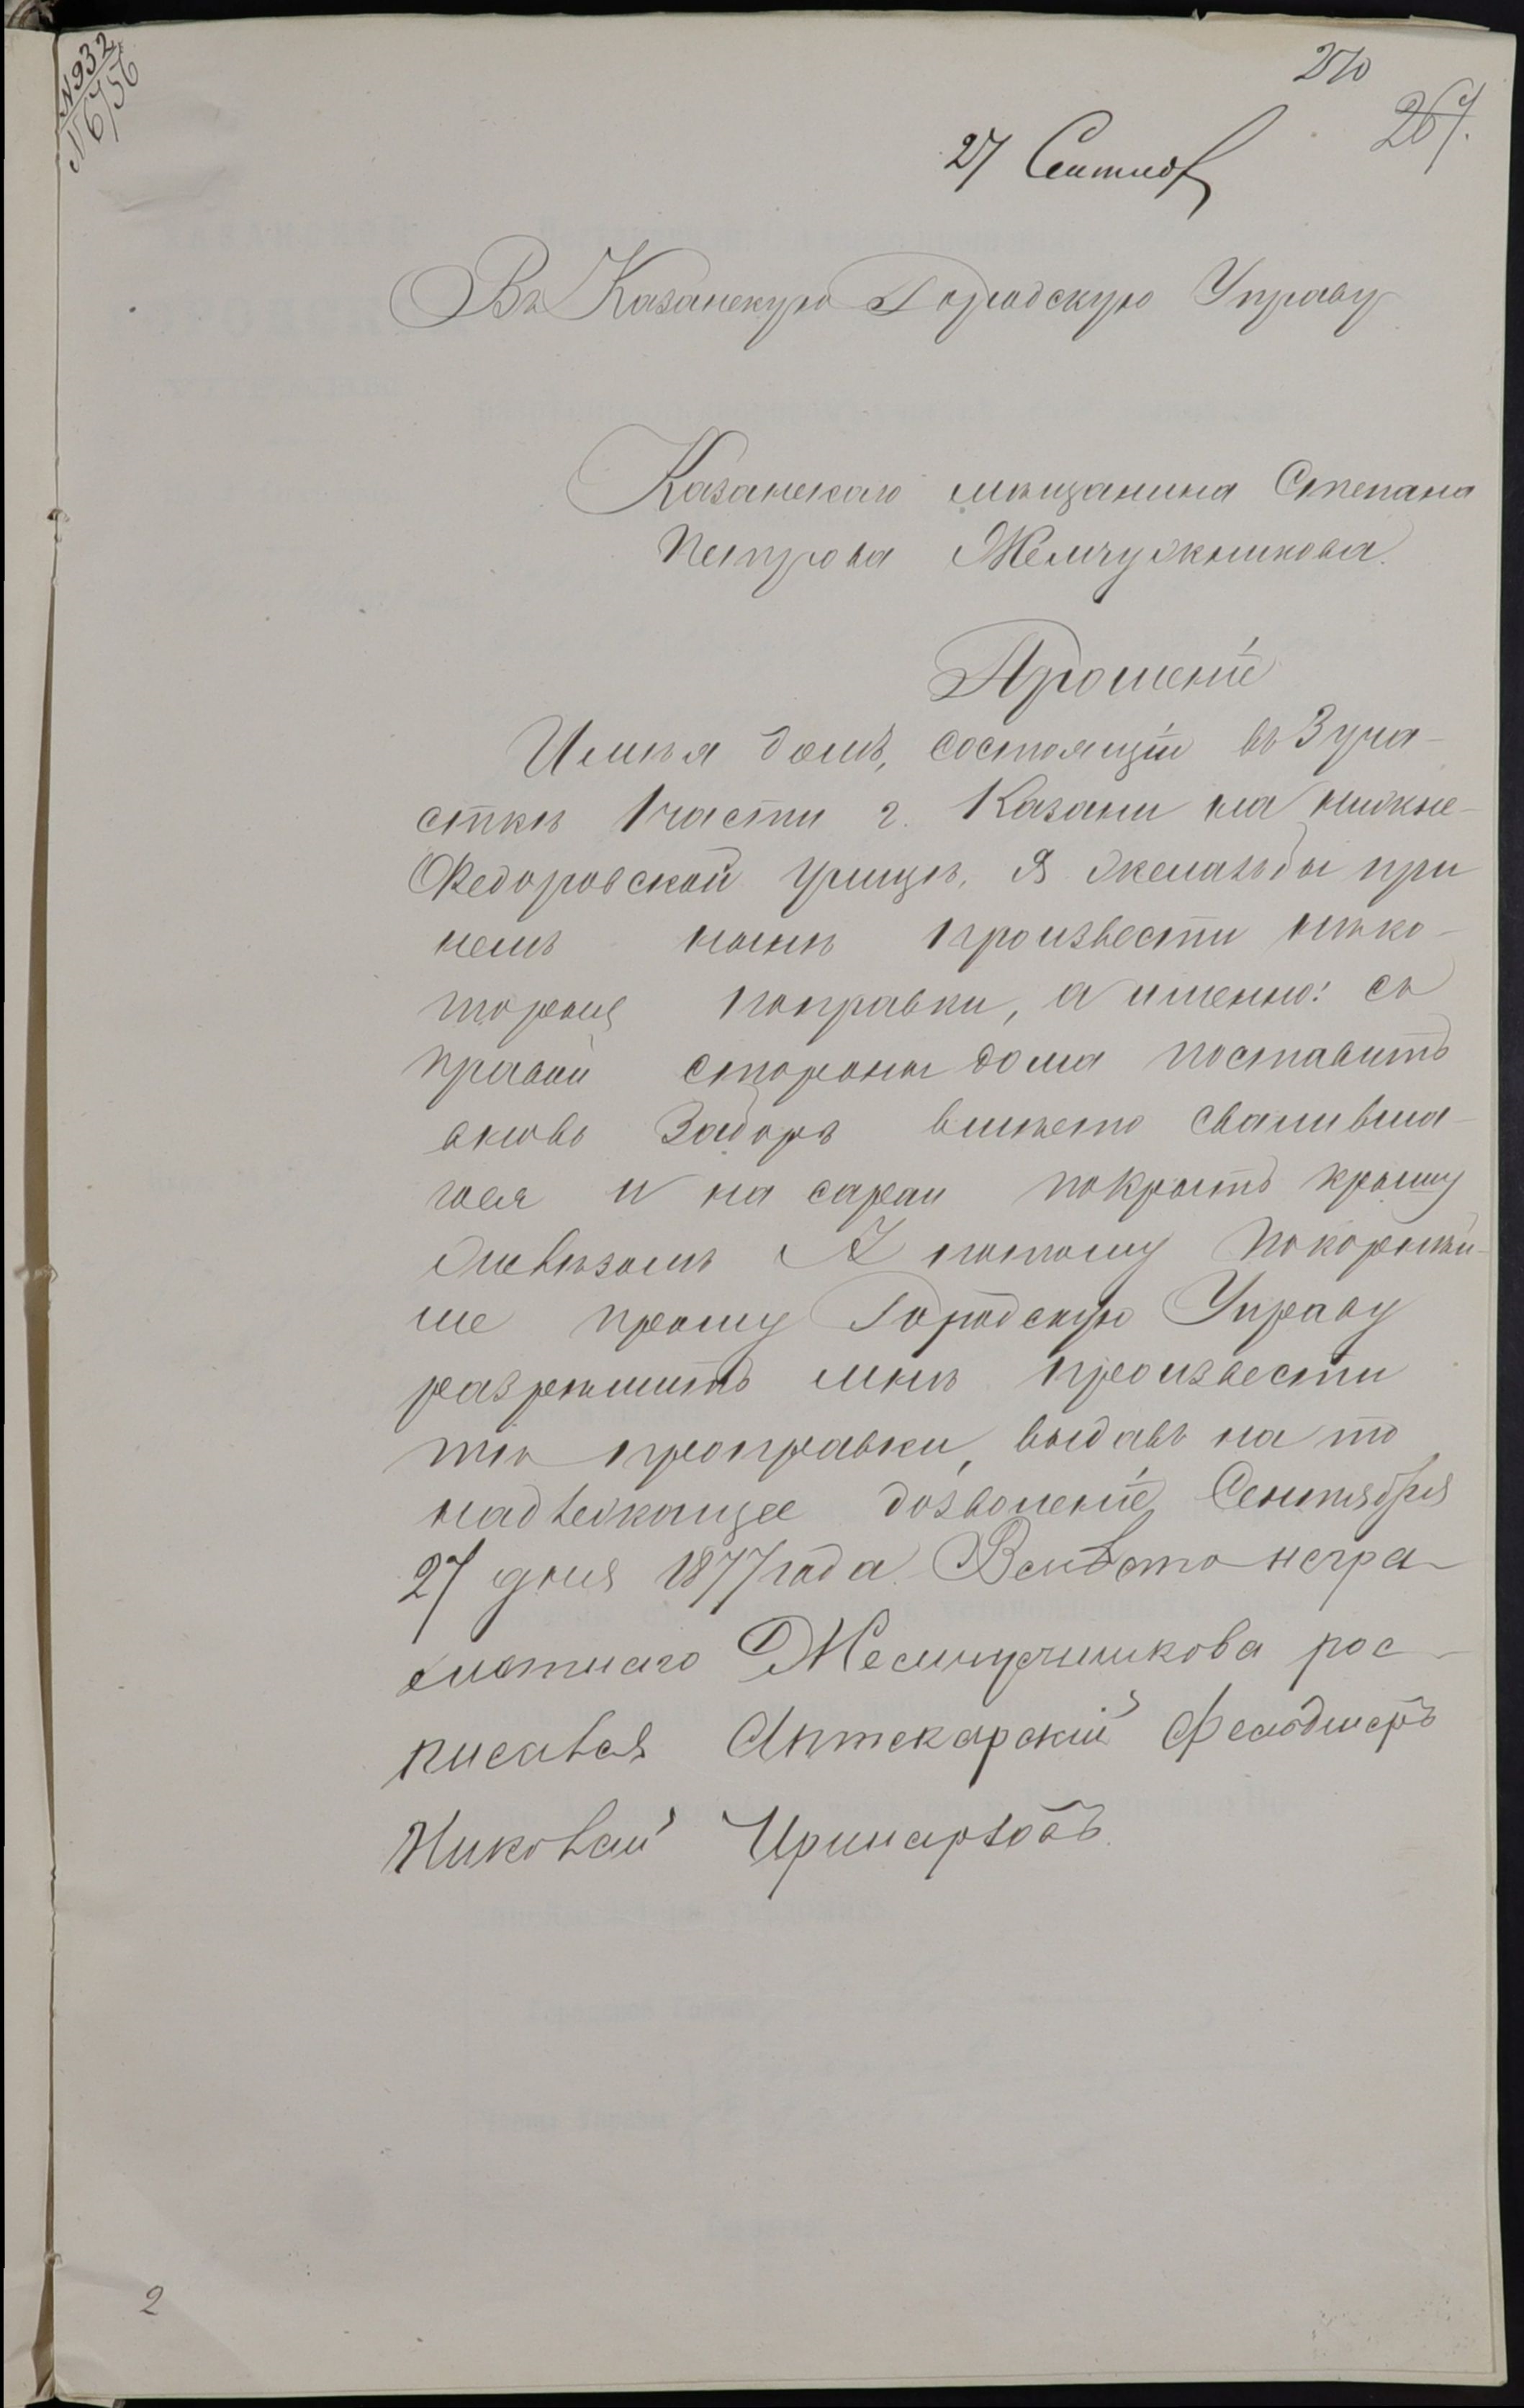 N 932
N 6756
270
267.
27 Сентяб
Въ Казанскую Городскую Управу
Казанскаго мѣщанина Степана
Петрова Жемчужникова.
Прошеніе
Имѣя домъ, состоящій въ 3 уча-
сткѣ 1 части г. Казани на нижне-
Федоровской улицѣ. Я желалъ бы при
немъ нынѣ произвести нѣко-
торыя поправки, а именно: съ
правой стороны дома поставить
вновь заборъ вмѣсто сваливша-
гося и на сараи покрыть крышу
А потому покорнѣй-
ше прошу Городскую Управу
разрешить мнѣ произвести
тѣ проправки, выдавъ на то
надлежащее дозволеніе, Сентября
27 дня 1877 года. Вмѣсто негра-
мотнаго Жемчужникова рос-
писался Аптекарскій Фельдшеръ
Николай Иринарховъ.
2